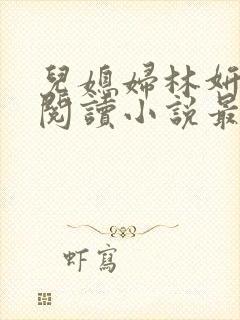 兒媳婦林妍
閱讀小說最
虾寫